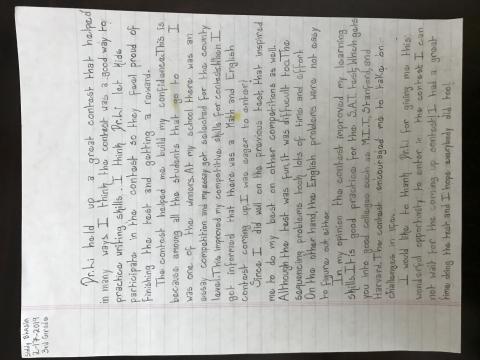 Siddy Bhasin
2-17-2019
3rd Grade
Dr. Li held up a great contest that helped
in many ways. I think the contest was a good way to
practice writing skills. I think Dr. Li let kids
participate in the contest so they feel proud of
finishing the test and getting a reward.
The contest helped me build my confidence. This is
because among all the students that go to I
was one of the winners. At my school there was an
essay competition and my essay got selected for the county
level. This improved my competitive skills for contests. When I
got informed that there was a Math and English
contest coming up, I was eager to enter!
Since I did well on the previous test, that inspired
me to do my best on other competitions as well.
Although the test was fun, it was difficult too. The
sequencing problems took lots of time and effort.
On the other hand, the English problems were not easy
to figure out either.
In my opinion the contest improved my learning
skills. It is good practice for the S.A.T. test, which gets
you into good colleges such as M.I.T, Stanford, and
Harvard. The contest encouraged me to take on
challenges in life.
I would like to thank Dr. Li for giving me this
wonderful opportunity to enter in the contest. I can
not wait for the coming up contests! I had a great
time doing the test and I hope everybody did too!